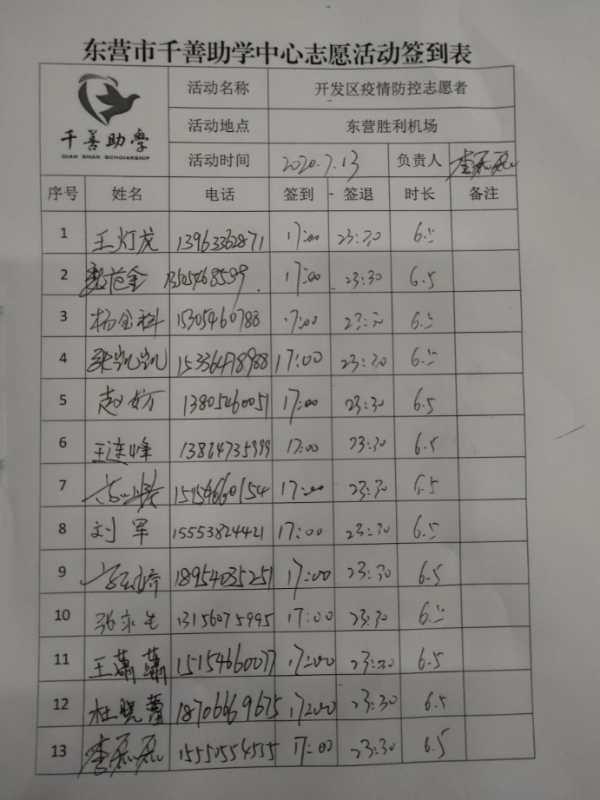 东营市千善助学中心志愿活动签到表
千善助学
QIAN SHAN SCHOLARSHIP
活动名称 开发区疫情防控志愿者
活动地点 东营胜利机场
活动时间 2020.7.13 负责人 李磊磊
序号 姓名 电话 签到 签退 时长 备注
1 王灯龙 13963362871 17:00 23:30 6.5
2 13505468599 17:00 23:30 6.5
3 杨金科 15305460788 17:00 23:30 6.5
4 张凯凯 15336498988 17:00 23:30 6.5
5 赵 13805460051 17:00 23:30 6.5
6 王连峰 13864735999 17:00 23:30 6.5
7 15154660154 17:00 23:30 6.5
8 刘军 15553824421 17:00 23:30 6.5
9 18954035251 17:00 23:30 6.5
10 张永生 13156075995 17:00 23:30 6.5
11 王萧萧 15154660077 17:00 23:30 6.5
12 杜晓蕾 18706669675 17:00 23:30 6.5
13 李磊磊 15550554535 17:00 23:30 6.5